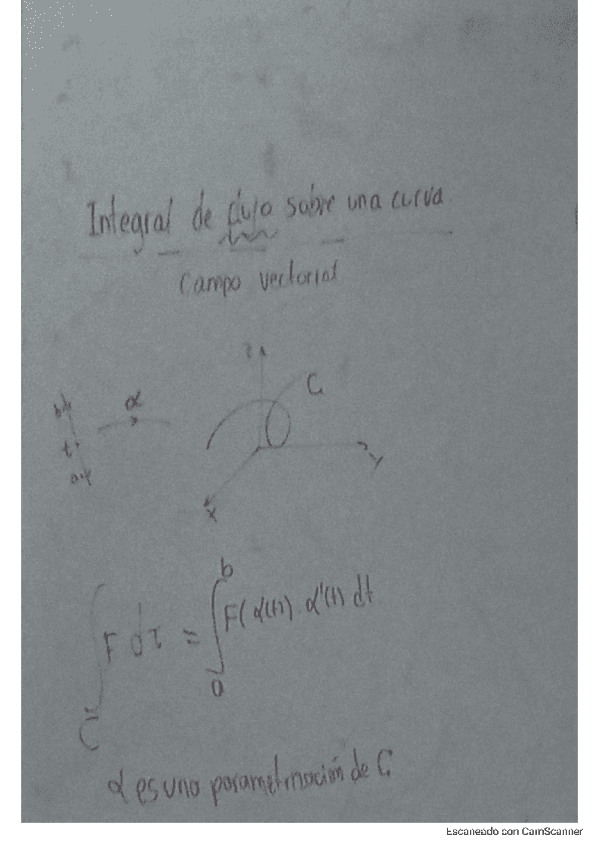 Integral de flujo sobre una curva
Campo vectorial
z
C
b
α
t
a
y
x
∫_C F dτ = ∫_a^b F(α(t)) α'(t) dt
α es una parametrización de C
Escaneado con CamScanner